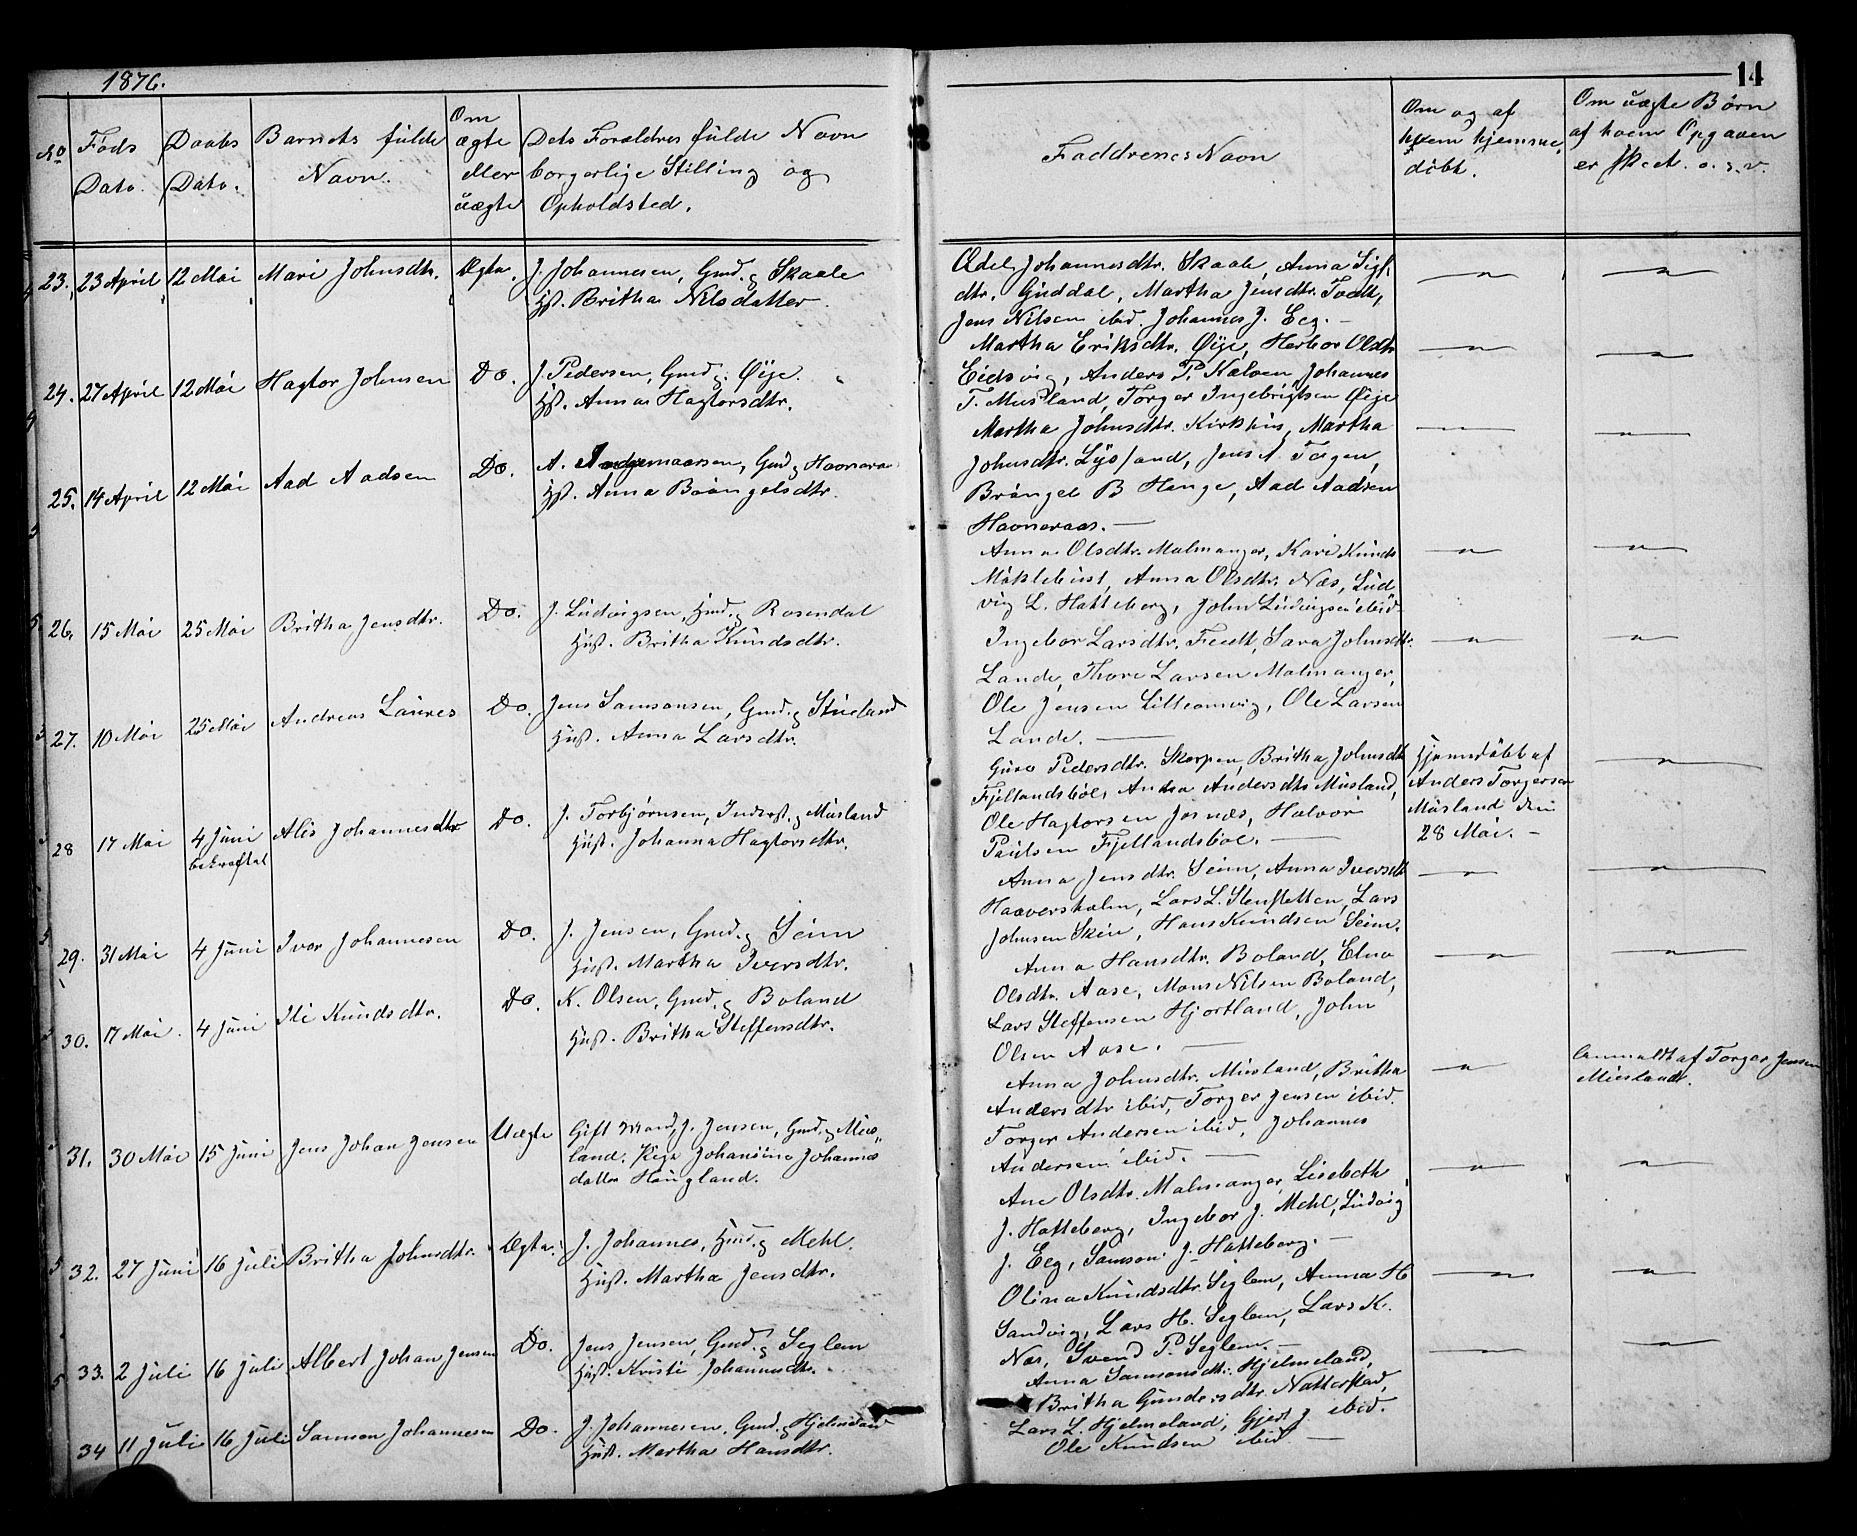 1876.
14
No
Føds Dato.
Daabs Dato.
Barnets fulde Navn.
Om ægte eller uægte
Dets Forældres fulde Navn borgerlige Stilling og Opholdsted.
Faddrenes Navn
Om og af hvem hjemme döbt.
Om uægte Börn af hvem Opgaven er skeet. o.s.v.
23. 23 April 12 Mai Mari Johnsdtr. Ægte. J. Johannesen, Gmd. Skaale
Hst. Britha Nilsdatter.
Adel Johannesdtr. Skaale, Anna Sigf.
dtr. Guddal, Martha Jensdtr. Tvedt,
Jens Nilsen ibid. Johannes J. Eeg. —
24. 27 April 12 Mai Hagtor Johnsen Do. J. Pedersen, Gmd. Øije.
Hst. Anna Hagtorsdtr.
Martha Eriksdtr. Øije, Herbor Olsdtr
Eidsvig, Anders P. Kalven, Johannes
T. Musland, Torger Ingebrigtsen Øije
25. 14 April 12 Mai Aad Aadsen Do. A. Gmd. Havneraa
Hst. Anna Brångelsdtr.
Martha Johnsdtr. Kirkhus, Martha
Johnsdtr. Lysland, Jens A.
Brångel B Henge, Aad Aadsen
Havneraas. —
26. 15 Mai 25 Mai Britha Jensdtr. Do. J. Ludvigsen, Hmd. Rosendal
Hust. Britha Knudsdtr.
Anna Olsdtr. Malmanger, Kari Knuds
Mæklebust, Anna Olsdtr. Næs, Lud
vig L. Hatteberg, John Ludvigsen ibid
27. 10 Mai 25 Mai Andreas Laures Do. Jens Samsonsen, Gmd. Stueland
Hust. Anna Larsdtr.
Ingebor Larsdtr. Tvedt, Sara Johnsdtr.
Lande, Thore Larsen Malmanger,
Ole Jensen Lilleomvig, Ole Larsen
Lande. —
28 17 Mai 4 Juni bekræftet Alis Johannesdtr Do. J. Torbjørnsen, Inderst. Musland
Hust. Johanna Hagtorsdtr.
Guro Pedersdtr. Skorpen, Britha Johnsdtr
Fjellandsböe, Andersdtr Musland,
Ole Hagtorsen Josnæs, Halvor
Paulsen Fjellandsböe. —
Hjemmedöbt af
Anders Torgersen
Musland den
28 Mai. —
29. 31 Mai 4 Juni Ivar Johannesen Do. J. Jensen, Gmd. Seim
Hust. Martha Iversdtr.
Anna Jensdtr. Seim, Anna Iversdtr
Haaversholm, Lars L. Stensletten, Lars
Johnsen Skeie, Hans Knudsen Seim.
30. 17 Mai. 4 Juni Ili Knudsdtr. Do. K. Olsen, Gmd. Boland
Hust. Britha Steffensdtr.
Anna Hansdtr. Boland, Elna
Olsdtr. Aase, Mons Nilsen Boland,
Lars Steffensen Hjortland, John
Olsen Aase. —
31. 30 Mai 15 Juni Jens Johan Jensen Uægte Gift Mand, J. Jensen, Gmd. Mus„
land. Pige Johansine Johannes
datter Haugland.
Anna Johnsdtr. Musland, Britha
Andersdtr ibid, Torger Jensen ibid.
Torger Andersen ibid, Johannes
Andersen ibid. —
Anmeldt af Torger Jensen
Musland.
32. 27 Juni 16 Juli Britha Johnsdtr. Ægte. J. Johannes, Hmd. Mehl.
Hust. Martha Jensdtr.
Ane Olsdtr. Malmanger, Lisebeth
J. Hatteberg, Ingebor J. Mehl, Ludvig
J. Eeg, Samson J. Hatteberg. —
33. 2 Juli 16 Juli Albert Johan Jensen Do. Jens Jensen, Gmd. Seglem
Hust. Kristi Johannesdtr.
Olina Knudsdtr. Seglem, Anna H
Sandvig, Lars H. Seglem, Lars K.
Næs, Svend P. Seglem. —
34 11 Juli 16 Juli Samson Johannesen Do. J. Johannesen, Gmd. Hjelmeland
Hust. Martha Hansdtr.
Anna Samsonsdtr. Hjelmeland,
Britha Gundersdtr. Nattersted,
Lars L. Hjelmeland, Gjert J. ibid.
Ole Knudsen ibid —